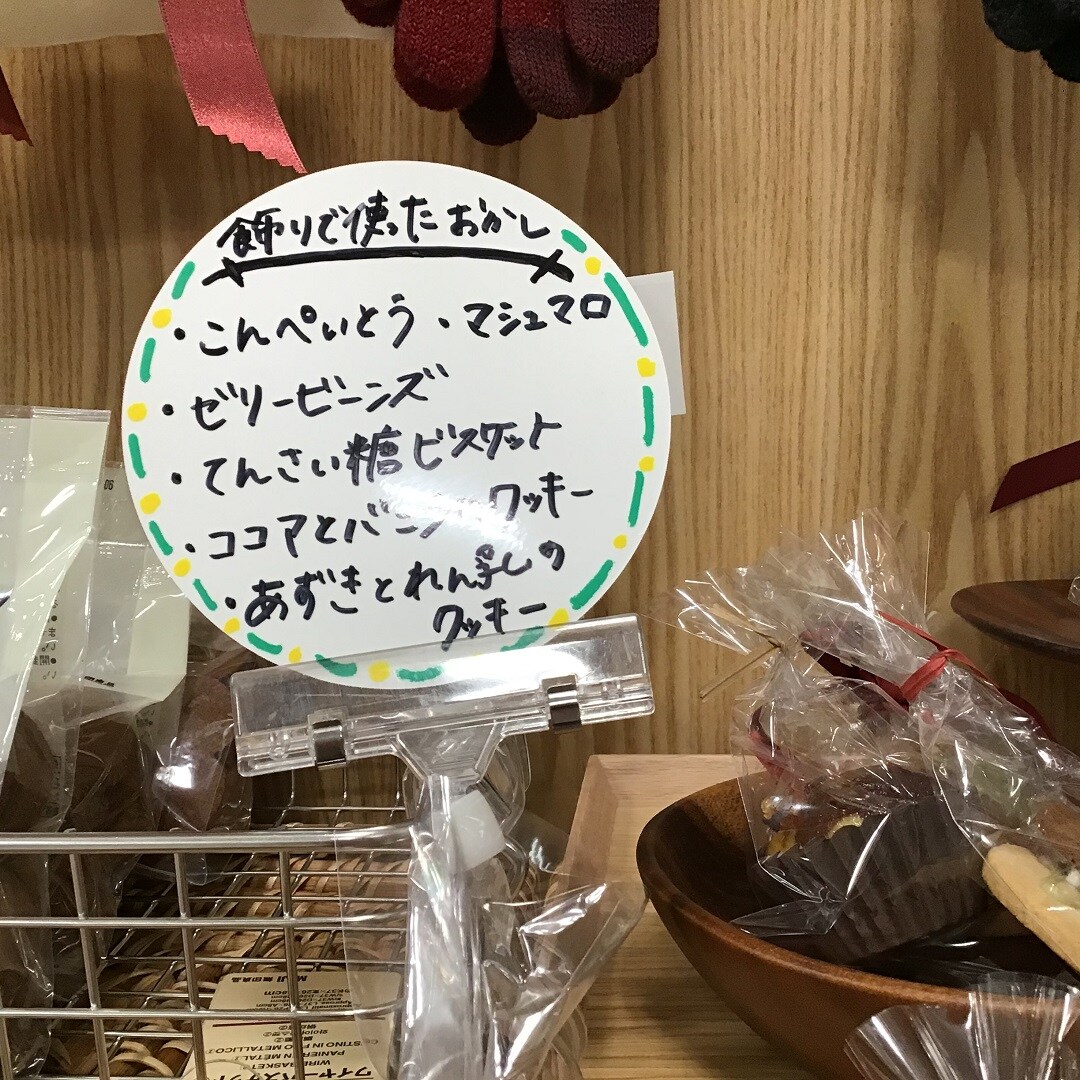 飾りで使ったおかし
・こんぺいとう ・マシュマロ
・ゼリービーンズ
・てんさい糖ビスケット
・ココアとバニラ クッキー
・あずきとれん乳の
クッキー
MUJI 無印良品
WIRE BASKET
PANIER EN MÉTAL